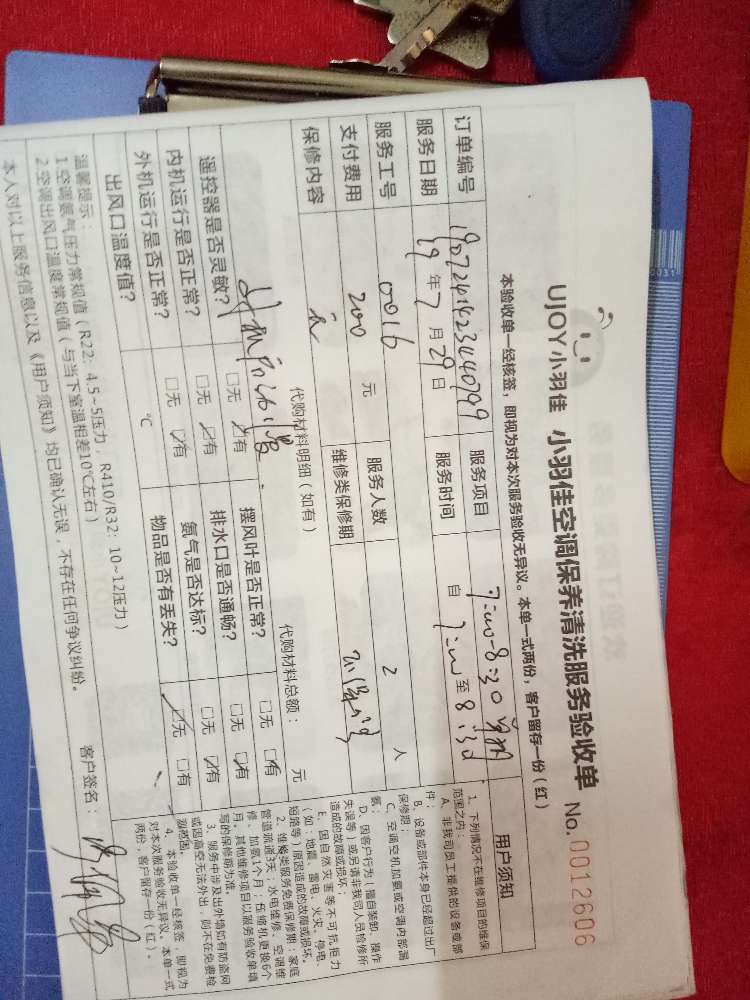 UJOY小羽佳 小羽佳空调保养清洗服务验收单 No. 0012606
本验收单一经核签，即视为对本次服务验收无异议。本单一式两份，客户留存一份（红）
订单编号 服务项目
服务日期 19 年 7 月 29 日 服务时间 自 至
服务工号 0016 服务人数 2 人
支付费用 200 元 维修类保修期
保修内容
代购材料明细（如有） 代购材料总额： 元
遥控器是否灵敏？ □无 ☑有 摆风叶是否正常？ □无 ☑有
内机运行是否正常？ □无 ☑有 排水口是否通畅？ □无 ☑有
外机运行是否正常？ □无 ☑有 氨气是否达标？ □无 ☑有
出风口温度值？ ℃ 物品是否有丢失？ ☑无 □有
温馨提示：
1空调氨气压力常规值（R22：4.5~5压力，R410/R32：10~12压力）
2空调出风口温度常规值（与当下室温相差10℃左右）
本人对以上服务信息以及《用户须知》均已确认无误，不存在任何争议纠纷。 客户签名：
用户须知
1、下列情况不在维修项目的维保
范围之内：
A、非我司员工提供的设备或部
件；
B、设备或部件本身已经超过出厂
保修期；
C、空调空机加氨或空调内部漏
氨；
D、因客户行为（擅自装卸、操作
失误等）或另请非我司人员检修所
造成的故障或损坏；
E、因自然灾害等不可抗拒力
（如：地震、雷电、火灾、停电、
短路等）原因造成的故障或损坏。
2、维修类服务免费保修期：家庭
管道疏通3天；水电维修、空调维
修、加氨1个月；压缩机更换6个
月，其他维修项目以服务验收单填
写的保修期为准。
3、服务中涉及出外墙如有防盗网
或因高空无法外出，则不在免费检
4、本验收单一经核签，即视为
对本次服务验收无异议。本单一式
两份，客户留存一份（红）。